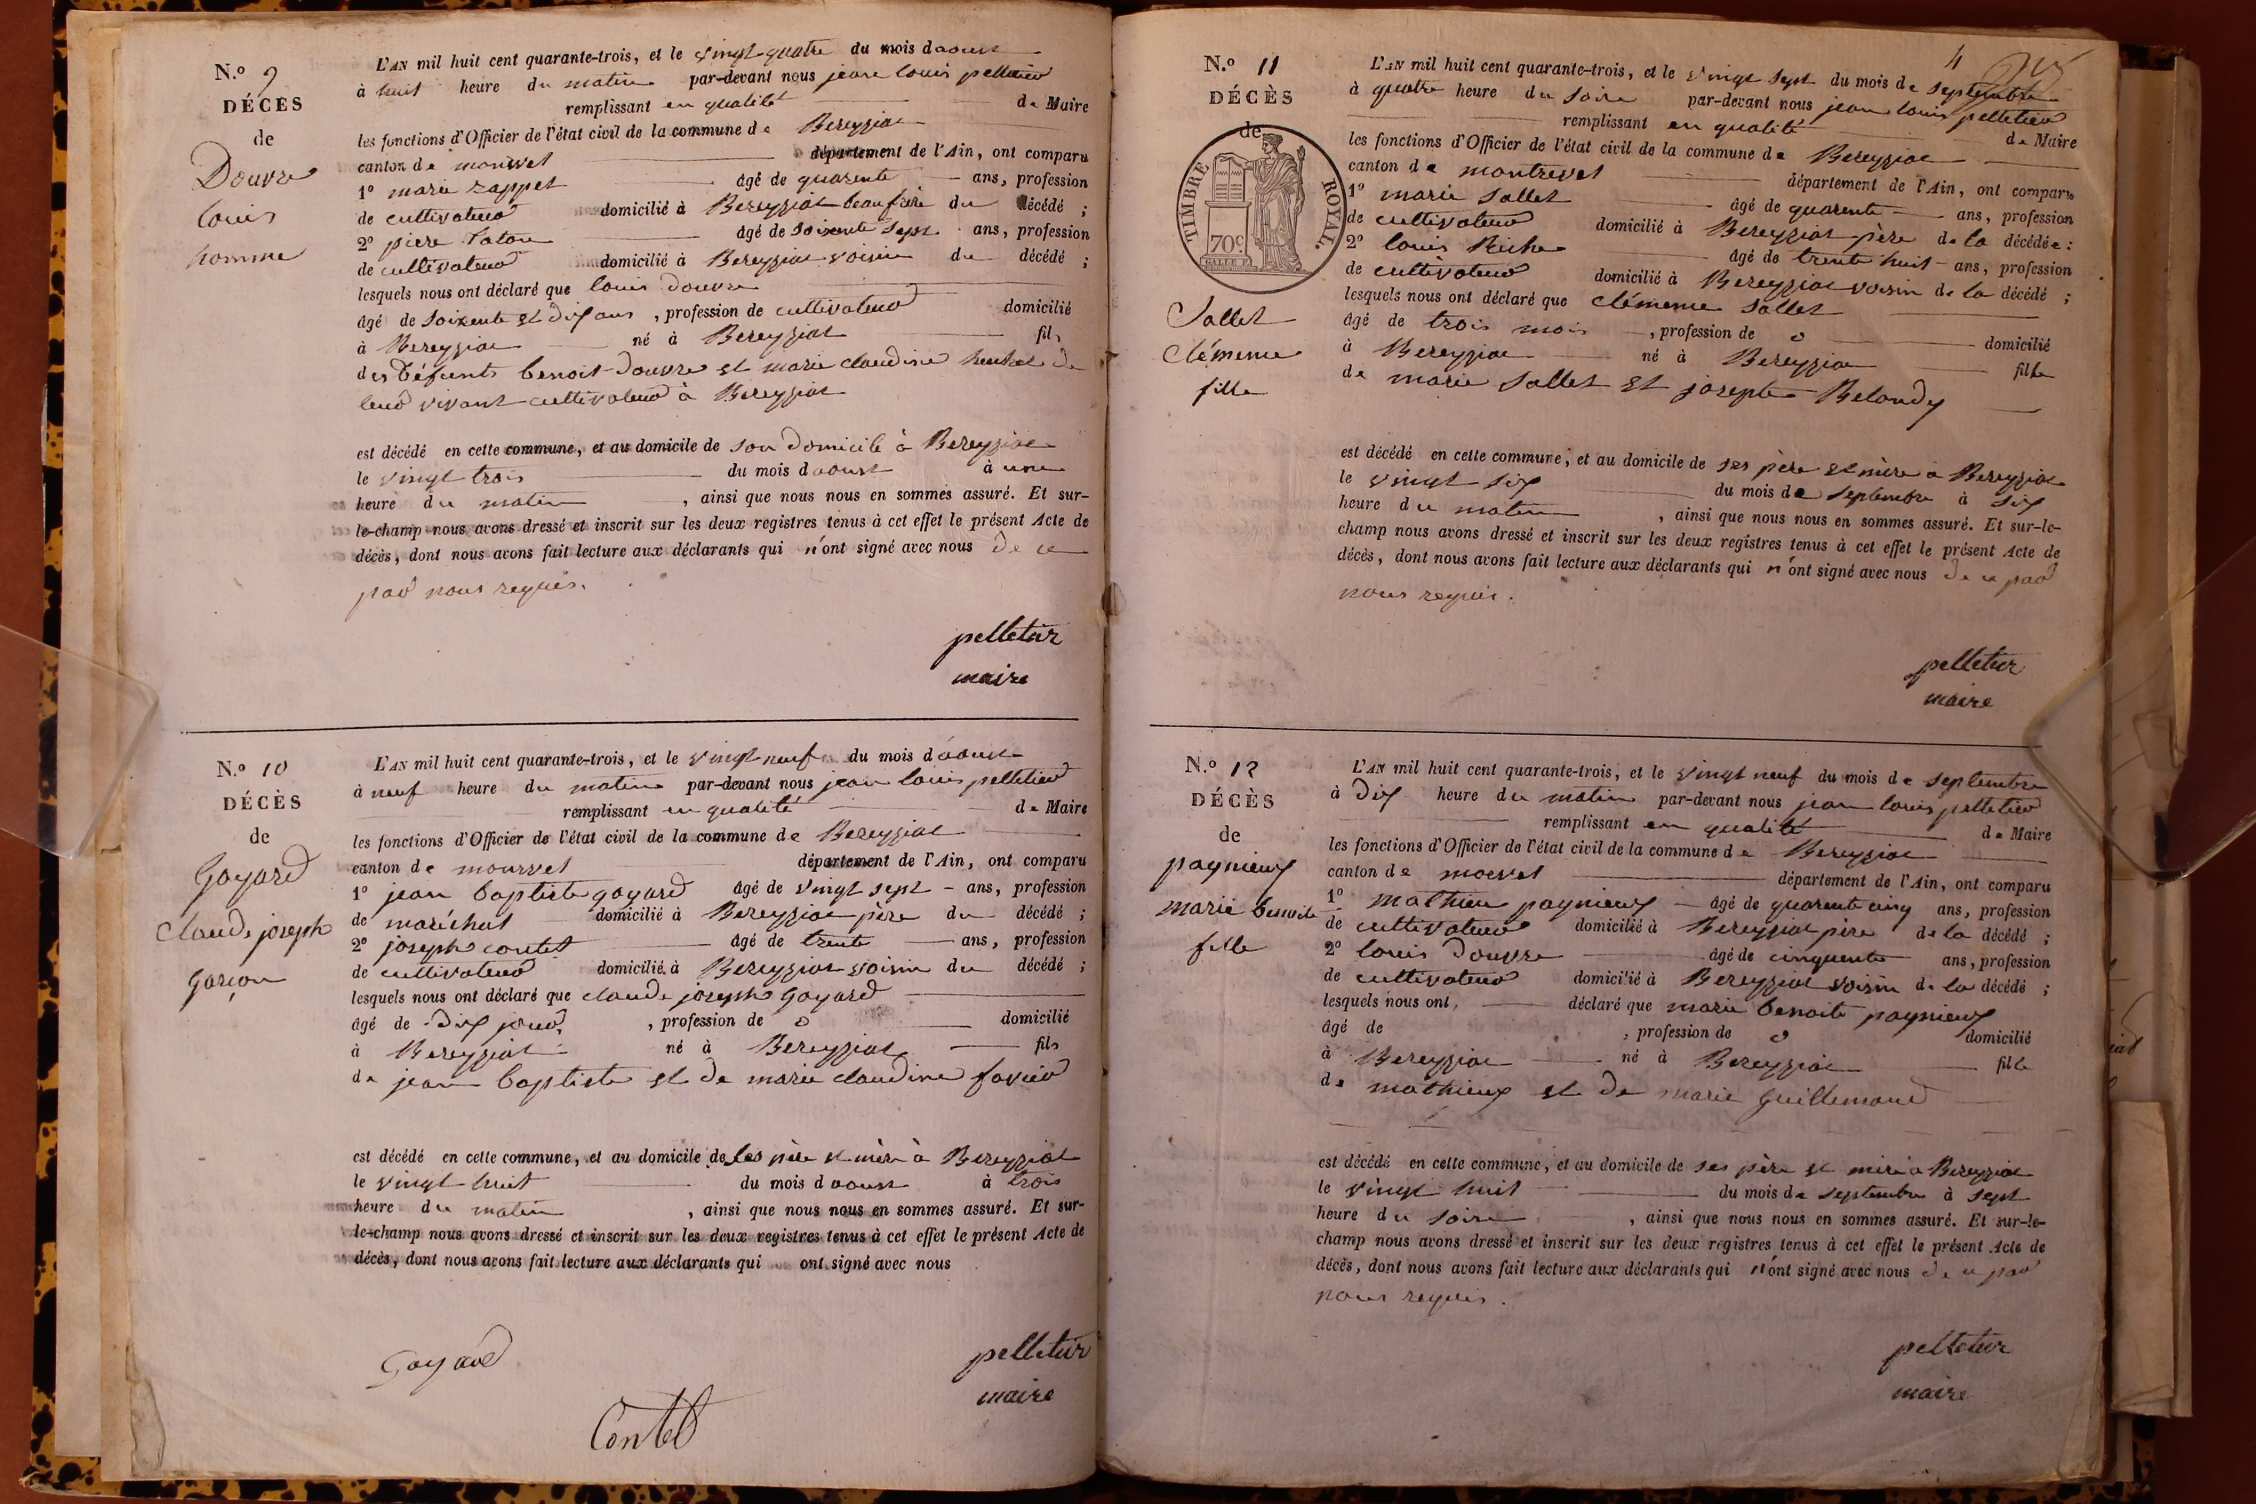 N.o 9
DÉCÈS
de
Douvre
louis
homme
L'AN mil huit cent quarante-trois, et le vingt-quatre du mois d aoust
à huit heure du matin par-devant nous jean louis pelletier
remplissant en qualité de Maire
les fonctions d'Officier de l'état civil de la commune de Bereyziat
canton de département de l'Ain, ont comparu
1o marie âgé de quarente ans, profession
de cultivateur domicilié à Bereyziat beaufrère du décédé ;
2o piere âgé de soixente sept ans, profession
de cultivateur domicilié à Bereyziat voisin du décédé ;
lesquels nous ont déclaré que louis douvre
âgé de soixente et dix ans , profession de cultivateur domicilié
à Bereyziat né à Bereyziat fils
des défunts benoit douvre et marie claudine de
leur vivant cultivateur à Bereyziat
est décédé en cette commune, et au domicile de son domicile à Bereyziat
le vingt trois du mois d aoust à une
heure du matin , ainsi que nous nous en sommes assuré. Et sur-
le-champ nous avons dressé et inscrit sur les deux registres tenus à cet effet le présent Acte de
décès, dont nous avons fait lecture aux déclarants qui n'ont signé avec nous de ce
par nous requis.
pelletier
maire
N.o 10
DÉCÈS
de
Goyard
Claude joseph
Garçon
L'AN mil huit cent quarante-trois, et le vingt neuf du mois d aoust
à neuf heure du matin par-devant nous jean louis pelletier
remplissant en qualité de Maire
les fonctions d'Officier de l'état civil de la commune de Bereyziat
canton de département de l'Ain, ont comparu
1o jean baptiste goyard âgé de vingt sept ans, profession
de maréchal domicilié à Bereyziat père du décédé ;
2o joseph contet âgé de trente ans, profession
de cultivateur domicilié à Bereyziat voisin du décédé ;
lesquels nous ont déclaré que claude joseph Goyard
âgé de dix jour , profession de o domicilié
à Bereyziat né à Bereyziat fils
de jean baptiste et de marie claudine favier
est décédé en cette commune, et au domicile de ses père et mère à Bereyziat
le vingt huit du mois d aoust à trois
heure du matin , ainsi que nous nous en sommes assuré. Et sur-
le-champ nous avons dressé et inscrit sur les deux registres tenus à cet effet le présent Acte de
décès, dont nous avons fait lecture aux déclarants qui ont signé avec nous
Goyard
pelletier
maire
Contet
4
N.o 11
DÉCÈS
de
TIMBRE ROYAL.
70c
Sallet
Clémence
fille
L'AN mil huit cent quarante-trois, et le vingt sept du mois de septembre
à quatre heure du soire par-devant nous jean louis pelletier
remplissant en qualité de Maire
les fonctions d'Officier de l'état civil de la commune de Bereyziat
canton de montrevel département de l'Ain, ont comparu
1o marie Sallet âgé de quarente ans, profession
de cultivateur domicilié à Bereyziat père de la décédée ;
2o louis Riche âgé de trente huit ans, profession
de cultivateur domicilié à Bereyziat voisin de la décédé ;
lesquels nous ont déclaré que clémence Sallet
âgé de trois mois , profession de o domicilié
à Bereyziat né à Bereyziat fille
de marie Sallet et josephte Belandy
est décédé en cette commune, et au domicile de ses père et mère à Bereyziat
le vingt six du mois de septembre à six
heure du matin , ainsi que nous nous en sommes assuré. Et sur-le-
champ nous avons dressé et inscrit sur les deux registres tenus à cet effet le présent Acte de
décès, dont nous avons fait lecture aux déclarants qui n'ont signé avec nous de ce par
nous requis.
pelletier
maire
N.o 12
DÉCÈS
de
pagnieux
marie benoite
fille
L'AN mil huit cent quarante-trois, et le vingt neuf du mois de septembre
à dix heure du matin par-devant nous jean louis pelletier
remplissant en qualité de Maire
les fonctions d'Officier de l'état civil de la commune de Bereyziat
canton de département de l'Ain, ont comparu
1o mathieu pagnieux âgé de quarente cinq ans, profession
de cultivateur domicilié à Bereyziat père de la décédé ;
2o louis douvre âgé de cinquente ans, profession
de cultivateur domicilié à Bereyziat voisin de la décédé ;
lesquels nous ont déclaré que marie benoite pagnieux
âgé de , profession de o domicilié
à Bereyziat né à Bereyziat fille
de mathieux et de marie Guillemaud
est décédé en cette commune, et au domicile de ses père et mère à Bereyziat
le vingt huit du mois de septembre à sept
heure du soire , ainsi que nous nous en sommes assuré. Et sur-le-
champ nous avons dressé et inscrit sur les deux registres tenus à cet effet le présent Acte de
décès, dont nous avons fait lecture aux déclarants qui n'ont signé avec nous de ce par
nous requis.
pelletier
maire